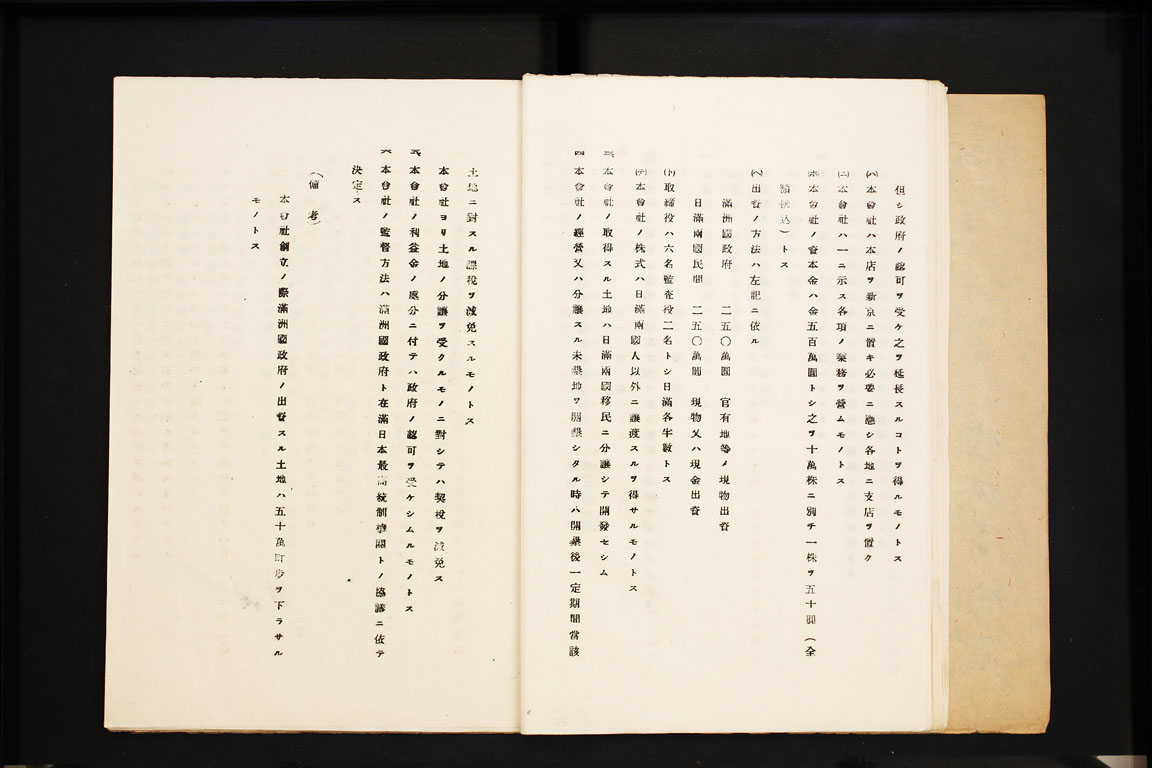 但シ政府ノ認可ヲ受ケ之ヲ延長スルコトヲ得ルモノトス
(ハ)本會社ハ本店ヲ新京ニ置キ必要ニ應シ各地ニ支店ヲ置ク
(ニ)本會社ハ一ニ示ス各項ノ業務ヲ營ムモノトス
(ホ)本會社ノ資本金ハ金五百萬圓トシ之ヲ十萬株ニ別チ一株ヲ五十圓(全
額拂込)トス
(ヘ)出資ノ方法ハ左記ニ依ル
滿洲國政府 二五〇萬圓 官有地等ノ現物出資
日滿兩國民間 二五〇萬圓 現物又ハ現金出資
(ト)取締役ハ六名監査役二名トシ日滿各半數トス
(チ)本會社ノ株式ハ日滿兩國人以外ニ讓渡スルヲ得サルモノトス
三、本會社ノ取得スル土地ハ日滿兩國移民ニ分讓シテ開發セシム
四、本會社ノ經營又ハ分讓スル未墾地ヲ開墾シタル時ハ開墾後一定期間當該
土地ニ對スル課税ヲ減免スルモノトス
本會社ヨリ土地ノ分讓ヲ受クルモノニ對シテハ契税ヲ減免ス
五、本會社ノ利益金ノ處分ニ付テハ政府ノ認可ヲ受ケシムルモノトス
六、本會社ノ監督方法ハ滿洲國政府ト在滿日本最高統制機關トノ協議ニ依テ
決定ス
(備考)
本會社創立ノ際滿洲國政府ノ出資スル土地ハ五十萬町歩ヲ下ラサル
モノトス